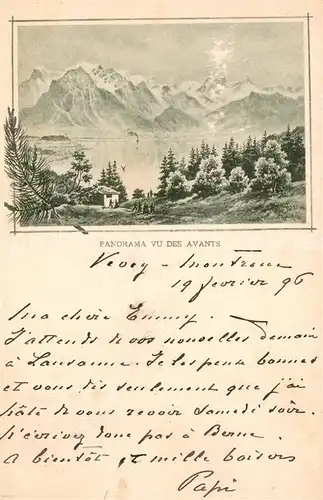 PANORAMA VU DES AVANTS
Vevey - Montreux
19 fevrier 96
Ma chère Emmy. -
J'attends de vos nouvelles demain
à Lausanne. Je les pense bonnes
et vous dis seulement que j'ai
hâte de vous revoir Samedi soir.
N'écrivez donc pas à Berne.
A bientôt et mille baisers
Papi